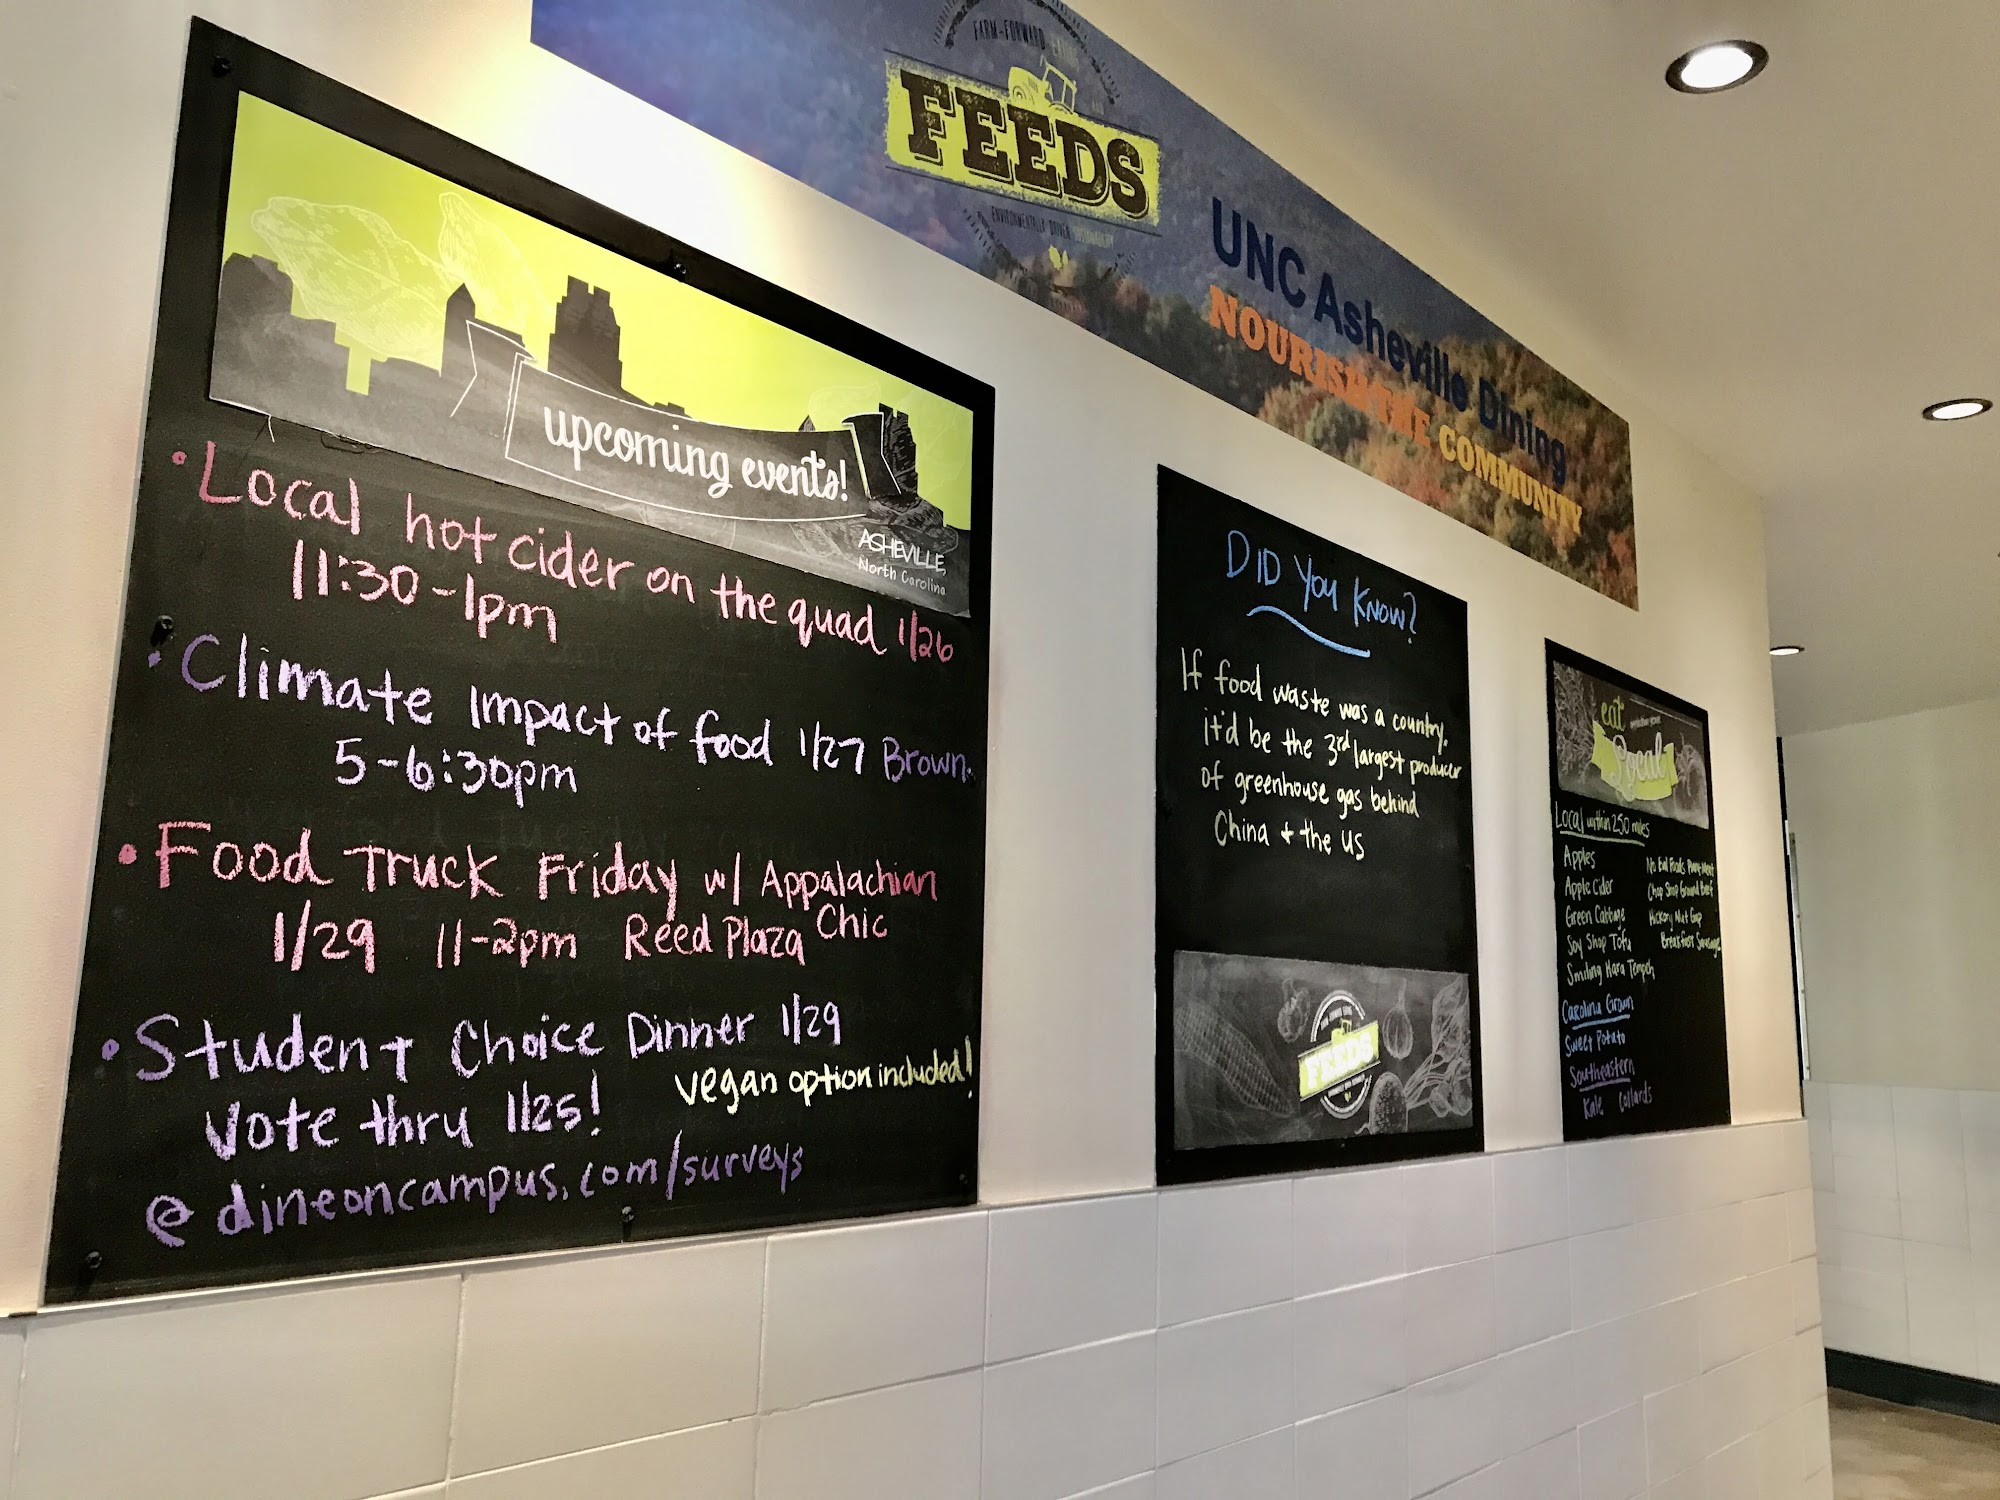 FARM-FORWARD EATING
FEEDS
ENVIRONMENTALLY DRIVEN SUSTAINABILITY
UNC Asheville Dining
NOURISH THE COMMUNITY
upcoming events!
ASHEVILLE,
North Carolina
• Local hot cider on the quad 1/26
11:30-1pm
• Climate Impact of food 1/27 Brown
5-6:30pm
• Food Truck Friday w/ Appalachian
Chic
1/29 11-2pm Reed Plaza
• Student Choice Dinner 1/29
vegan option included!
Vote thru 1/25!
@ dineoncampus.com/surveys
DID YOU KNOW?
If food waste was a country,
it'd be the 3rd largest producer
of greenhouse gas behind
China + the US
FEEDS
eat
local
Local within 250 miles
Apples
Apple Cider
Green Cabbage
Soy Shop Tofu
Smiling Hara Tempeh
No Evil Foods Plant Meat
Chop Shop Ground Beef
Hickory Nut Gap
Breakfast Sausage
Carolina Grown
Sweet Potato
Southeastern
Kale Collards